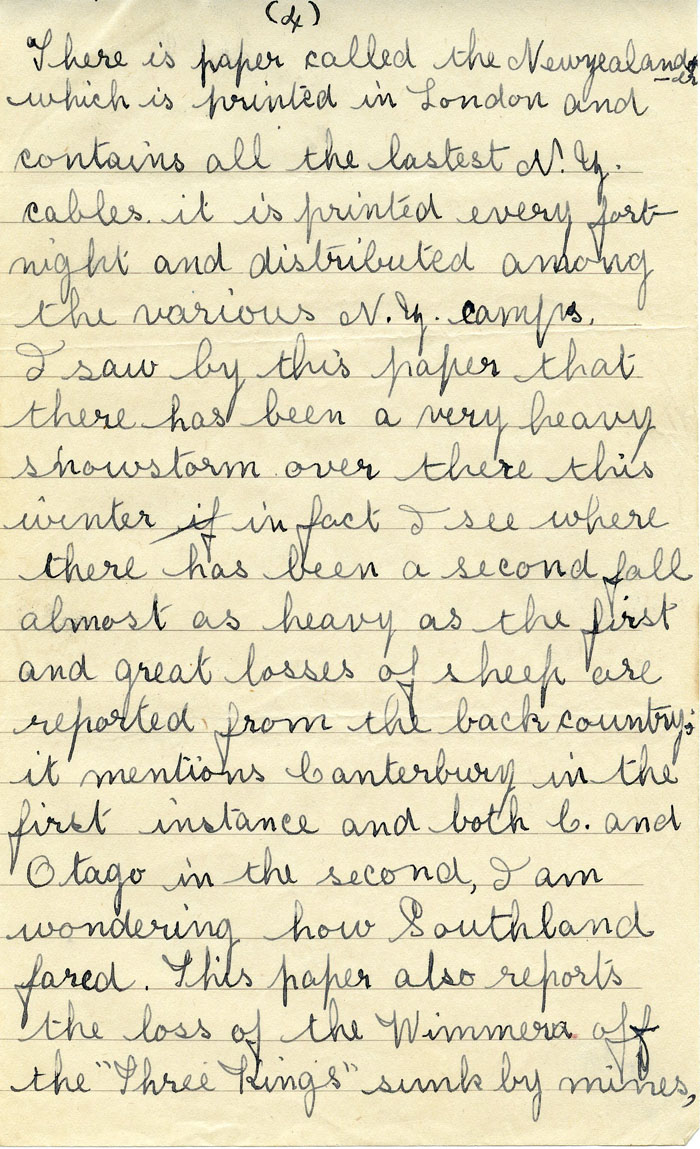 (4)
There is paper called the Newzealand-er
which is printed in London and
contains all the lastest N.Z.
cables. it is printed every fort
night and distributed among
the various N.Z. camps.
I saw by this paper that
there has been a very heavy
snowstorm over there this
winter if in fact I see where
there has been a second fall
almost as heavy as the first
and great losses of sheep are
reported from the back country;
it mentions Canterbury in the
first instance and both C. and
Otago in the second, I am
wondering how Southland
fared. This paper also reports
the loss of the Wimmera off
the "Three Kings" sunk by mines,